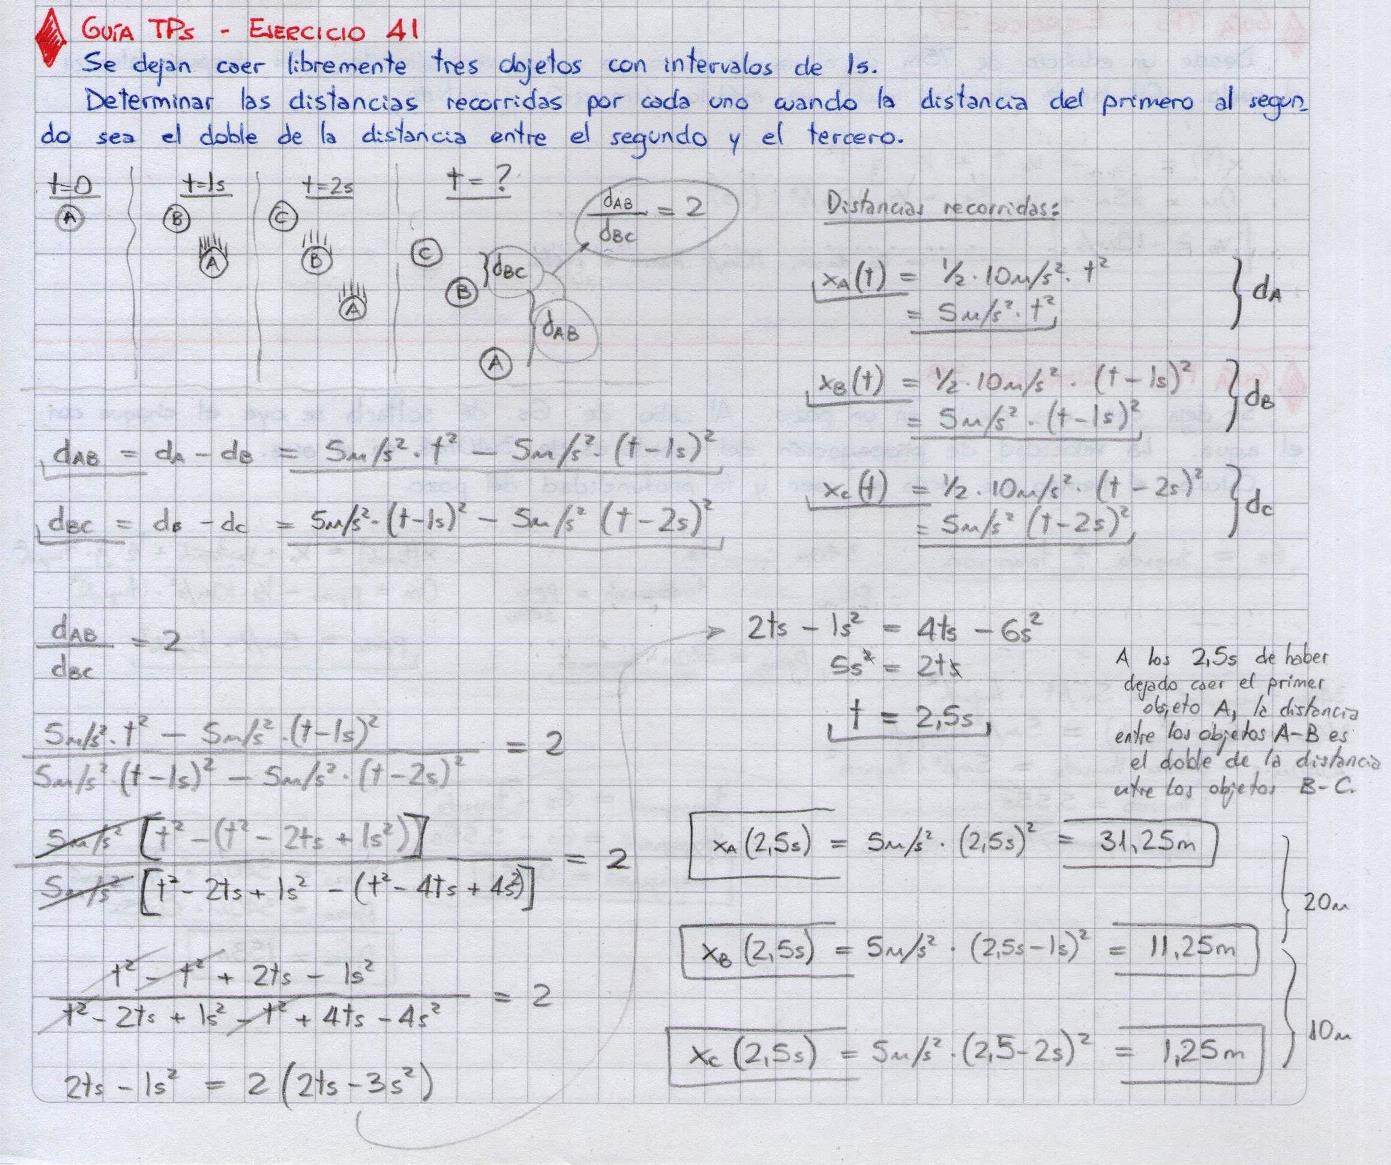 GUÍA TPs - EJERCICIO 41
Se dejan caer libremente tres objetos con intervalos de 1s.
Determinar las distancias recorridas por cada uno cuando la distancia del primero al segun-
do sea el doble de la distancia entre el segundo y el tercero.
t=0 t=1s t=2s t=?
A B A C B A C B A
dBC
dAB
dAB/dBC = 2
Distancias recorridas:
xA(t) = 1/2·10m/s²·t² } dA
= 5m/s²·t²
xB(t) = 1/2·10m/s²·(t-1s)² } dB
= 5m/s²·(t-1s)²
xC(t) = 1/2·10m/s²·(t-2s)² } dC
= 5m/s²(t-2s)²
dAB = dA - dB = 5m/s²·t² - 5m/s²·(t-1s)²
dBC = dB - dC = 5m/s²·(t-1s)² - 5m/s²(t-2s)²
dAB/dBC = 2
5m/s²·t² - 5m/s²·(t-1s)²
5m/s²·(t-1s)² - 5m/s²·(t-2s)² = 2
5m/s² [t² - (t² - 2ts + 1s²)]
5m/s² [t² - 2ts + 1s² - (t² - 4ts + 4s²)] = 2
t² - t² + 2ts - 1s²
t² - 2ts + 1s² - t² + 4ts - 4s² = 2
2ts - 1s² = 2(2ts - 3s²)
2ts - 1s² = 4ts - 6s²
5s² = 2ts
t = 2,5s
A los 2,5s de haber
dejado caer el primer
objeto A, la distancia
entre los objetos A-B es
el doble de la distancia
entre los objetos B-C.
xA(2,5s) = 5m/s²·(2,5s)² = 31,25m
20m
xB(2,5s) = 5m/s²·(2,5s-1s)² = 11,25m
10m
xC(2,5s) = 5m/s²·(2,5-2s)² = 1,25m